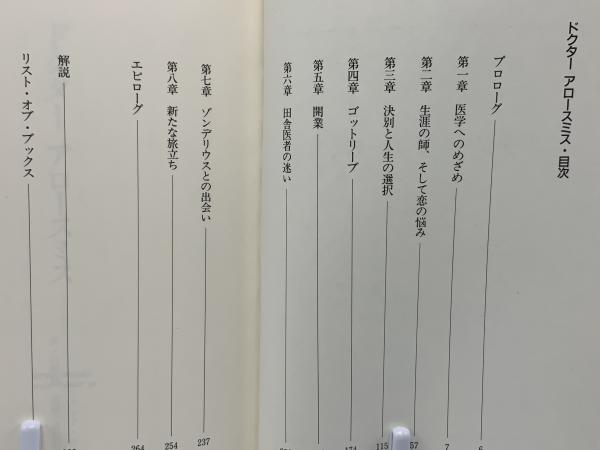 ドクター アロースミス・目次
プロローグ 6
第一章 医学へのめざめ 7
第二章 生涯の師、そして恋の悩み 57
第三章 決別と人生の選択 115
第四章 ゴットリーブ 174
第五章 開業
第六章 田舎医者の迷い
第七章 ゾンデリウスとの出会い 237
第八章 新たな旅立ち 254
エピローグ 264
解説
リスト・オブ・ブックス